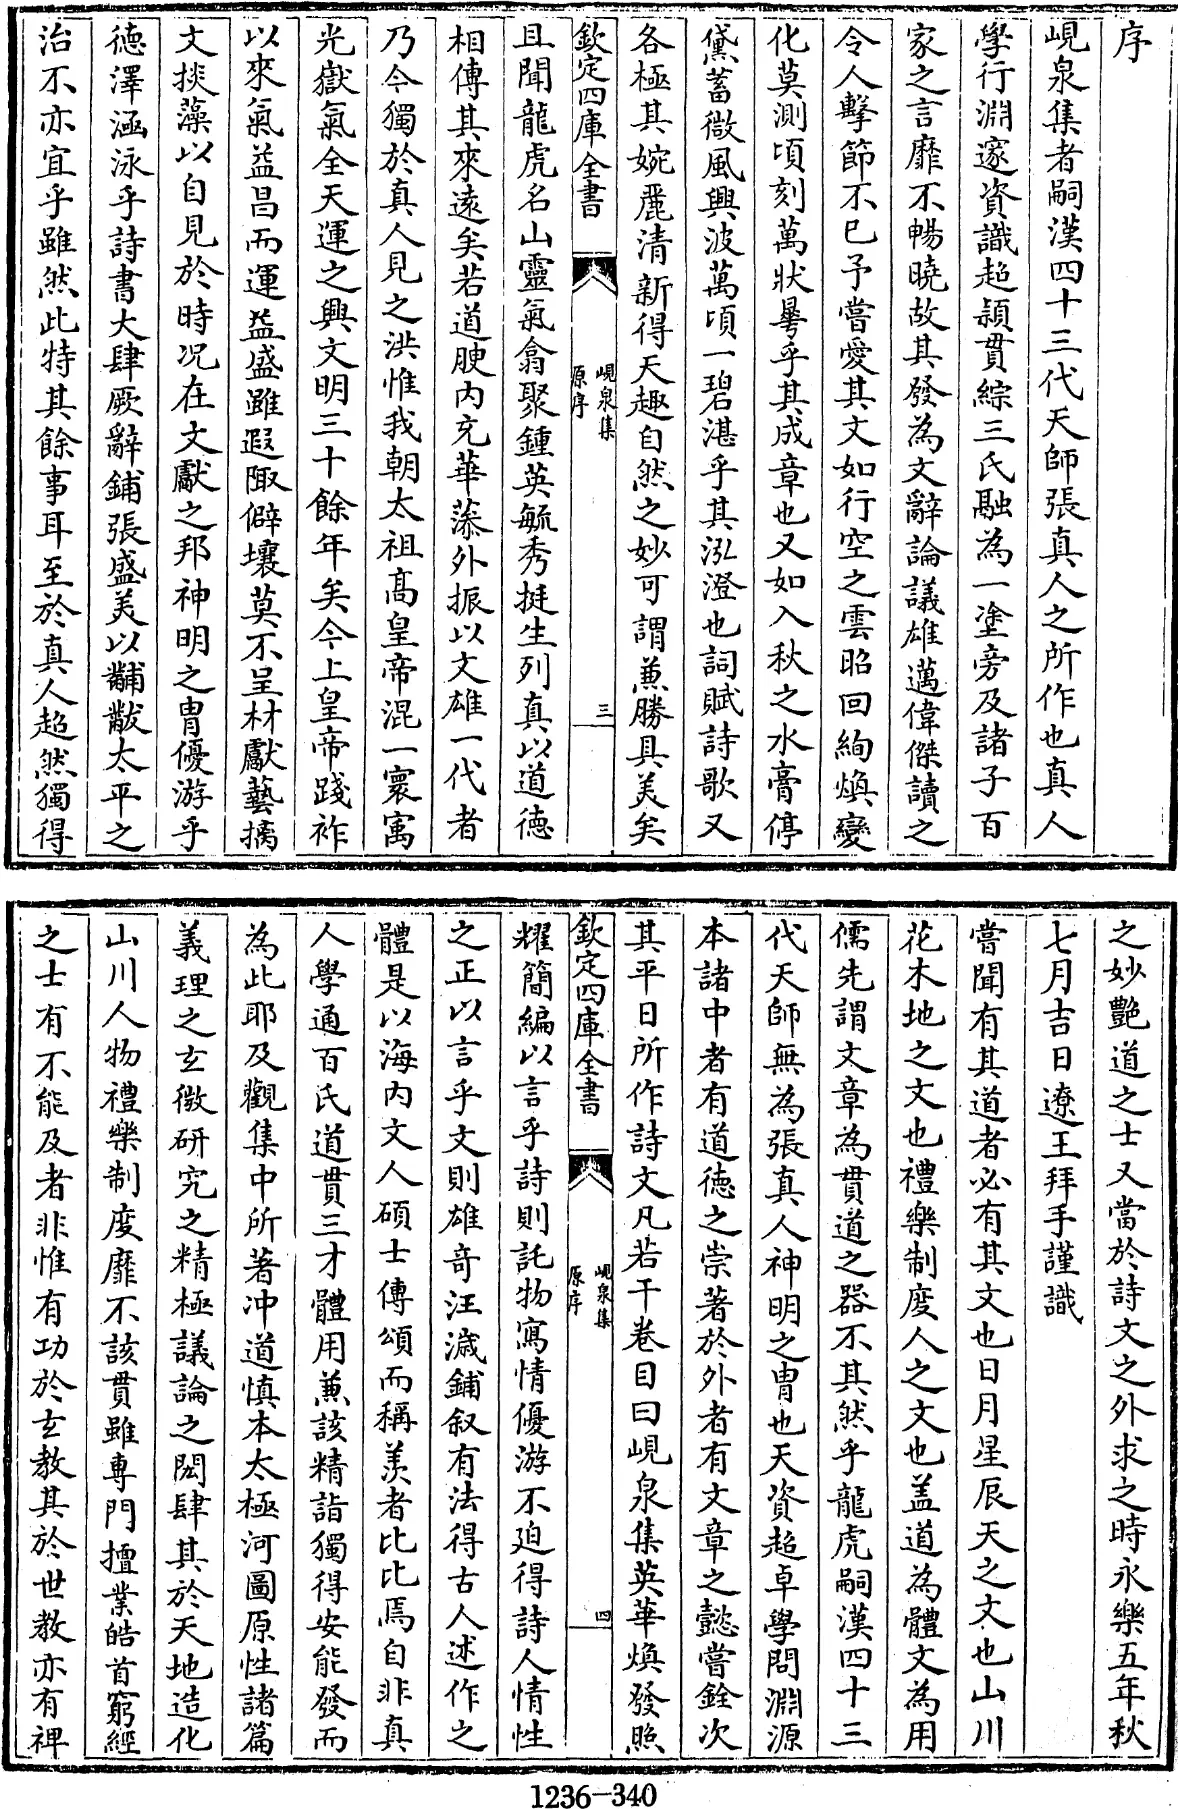 序
峴泉集者嗣漢四十三代天師張真人之所作也真人
學行淵邃資識超穎貫綜三氏融為一塗旁及諸子百
家之言靡不暢曉故其發為文辭論議雄邁偉傑讀之
令人擊節不已予嘗愛其文如行空之雲昭回絢煥變
化莫測頃刻萬狀畢乎其成章也又如入秋之水膏停
黛蓄微風興波萬頃一碧湛乎其泓澄也詞賦詩歌又
各極其婉麗清新得天趣自然之妙可謂兼勝具美矣
欽定四庫全書
峴泉集
原序
三
且聞龍虎名山靈氣翕聚鍾英毓秀挺生列真以道德
相傳其來遠矣若道腴內充華藻外振以文雄一代者
乃今獨於真人見之洪惟我朝太祖高皇帝混一寰寓
光嶽氣全天運之興文明三十餘年矣今上皇帝踐祚
以來氣益昌而運益盛雖遐陬僻壤莫不呈材獻藝摛
文掞藻以自見於時况在文獻之邦神明之胄優游乎
德澤涵泳乎詩書大肆厥辭鋪張盛美以黼黻太平之
治不亦宜乎雖然此特其餘事耳至於真人超然獨得
之妙艷道之士又當於詩文之外求之時永樂五年秋
七月吉日遼王拜手謹識
嘗聞有其道者必有其文也日月星辰天之文也山川
花木地之文也禮樂制度人之文也盖道為體文為用
儒先謂文章為貫道之器不其然乎龍虎嗣漢四十三
代天師無為張真人神明之胄也天資超卓學問淵源
本諸中者有道德之崇著於外者有文章之懿嘗銓次
其平日所作詩文凡若干卷目曰峴泉集英華煥發照
欽定四庫全書
峴泉集
原序
四
耀簡編以言乎詩則託物寫情優游不迫得詩人情性
之正以言乎文則雄奇汪濊鋪叙有法得古人述作之
體是以海内文人碩士傳頌而稱羨者比比焉自非真
人學通百氏道貫三才體用兼該精詣獨得安能發而
為此耶及觀集中所著冲道慎本太極河圖原性諸篇
義理之玄微研究之精極議論之閎肆其於天地造化
山川人物禮樂制度靡不該貫雖專門擅業皓首窮經
之士有不能及者非惟有功於玄教其於世教亦有裨
1236-340